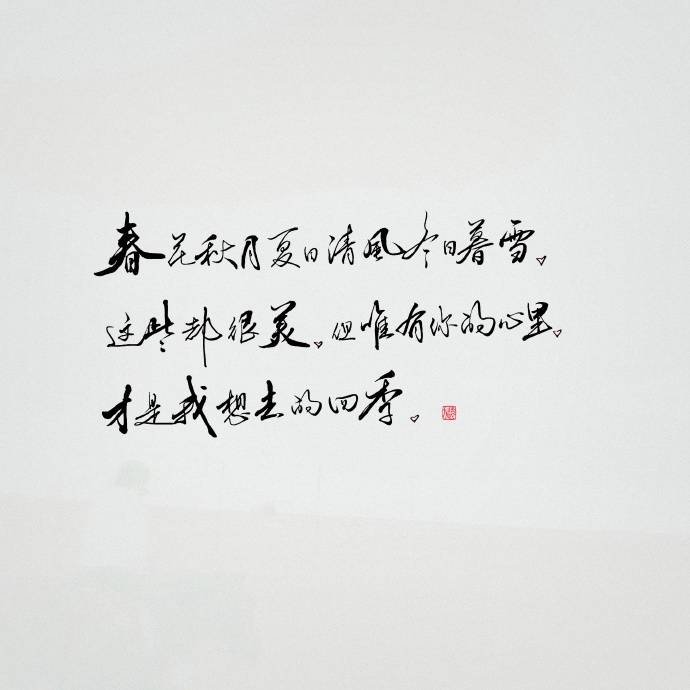 春花秋月夏日清风冬日暮雪。
这些都很美。但唯有你的心里。
才是我想去的四季。